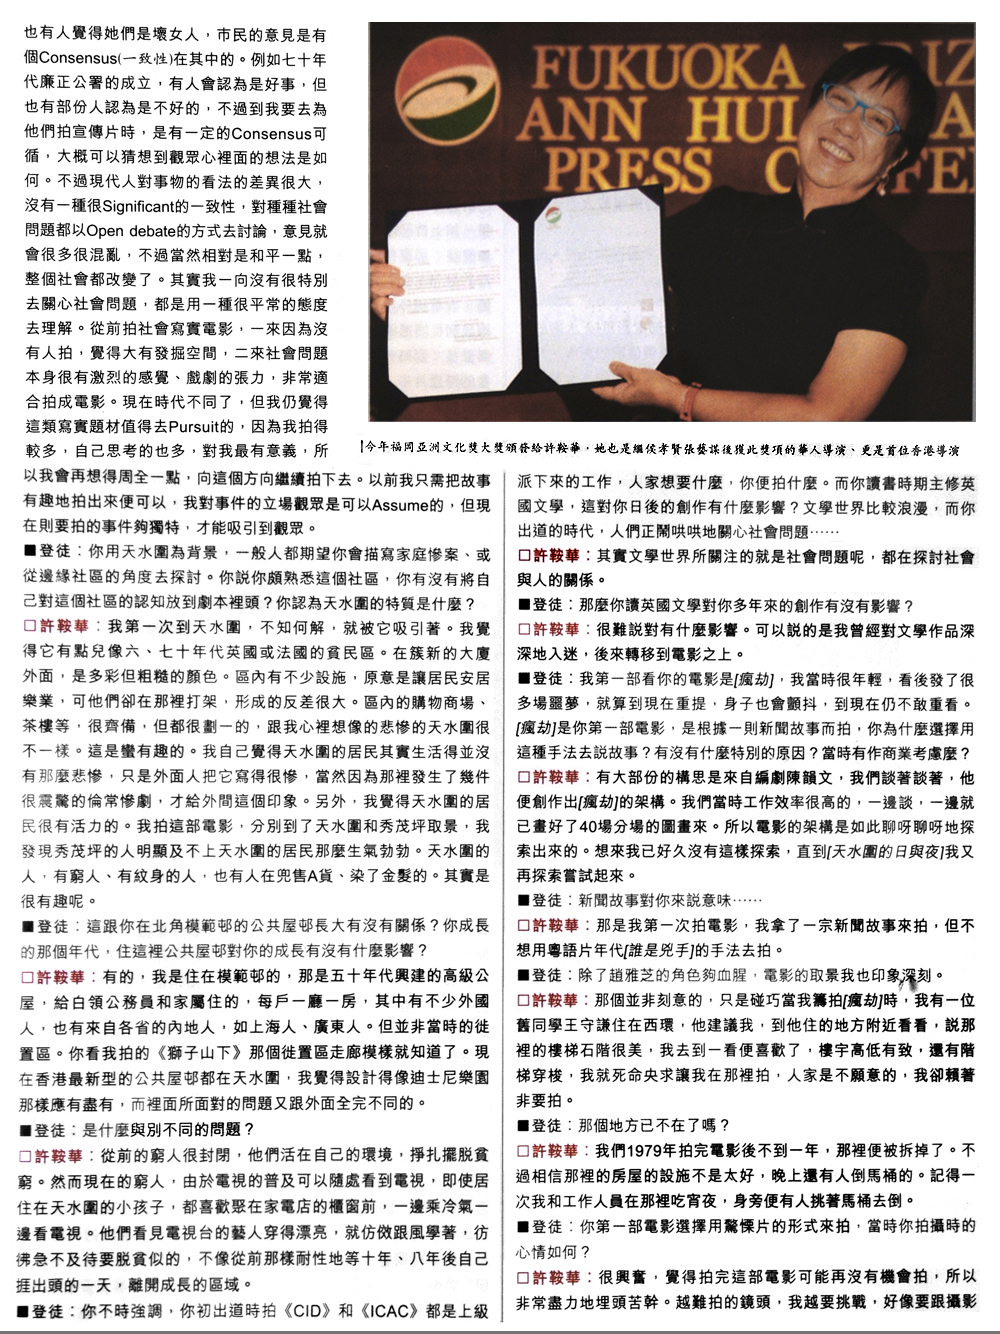 也有人覺得她們是壞女人，市民的意見是有
個Consensus(一致性)在其中的。例如七十年
代廉正公署的成立，有人會認為是好事，但
也有部份人認為是不好的，不過到我要去為
他們拍宣傳片時，是有一定的Consensus可
循，大概可以猜想到觀眾心裡面的想法是如
何。不過現代人對事物的看法的差異很大，
沒有一種很Significant的一致性，對種種社會
問題都以Open debate的方式去討論，意見就
會很多很混亂，不過當然相對是和平一點，
整個社會都改變了。其實我一向沒有很特別
去關心社會問題，都是用一種很平常的態度
去理解。從前拍社會寫實電影，一來因為沒
有人拍，覺得大有發掘空間，二來社會問題
本身很有激烈的感覺、戲劇的張力，非常適
合拍成電影。現在時代不同了，但我仍覺得
這類寫實題材值得去Pursuit的，因為我拍得
較多，自己思考的也多，對我最有意義，所
以我會再想得周全一點，向這個方向繼續拍下去。以前我只需把故事
有趣地拍出來便可以，我對事件的立場觀眾是可以Assume的，但現
在則要拍的事件夠獨特，才能吸引到觀眾。
■登徒：你用天水圍為背景，一般人都期望你會描寫家庭慘案、或
從邊緣社區的角度去探討。你說你頗熟悉這個社區，你有沒有將自
己對這個社區的認知放到劇本裡頭？你認為天水圍的特質是什麼？
□許鞍華：我第一次到天水圍，不知何解，就被它吸引著。我覺
得它有點兒像六、七十年代英國或法國的貧民區。在簇新的大廈
外面，是多彩但粗糙的顏色。區內有不少設施，原意是讓居民安居
樂業，可他們卻在那裡打架，形成的反差很大。區內的購物商場、
茶樓等，很齊備，但都很劃一的，跟我心裡想像的悲慘的天水圍很
不一樣。這是蠻有趣的。我自己覺得天水圍的居民其實生活得並沒
有那麼悲慘，只是外面人把它寫得很慘，當然因為那裡發生了幾件
很震驚的倫常慘劇，才給外間這個印象。另外，我覺得天水圍的居
民很有活力的。我拍這部電影，分別到了天水圍和秀茂坪取景，我
發現秀茂坪的人明顯及不上天水圍的居民那麼生氣勃勃。天水圍的
人，有窮人、有紋身的人，也有人在兜售A貨、染了金髮的。其實是
很有趣呢。
■登徒：這跟你在北角模範邨的公共屋邨長大有沒有關係？你成長
的那個年代，住這裡公共屋邨對你的成長有沒有什麼影響？
□許鞍華：有的，我是住在模範邨的，那是五十年代興建的高級公
屋，給白領公務員和家屬住的，每戶一廳一房，其中有不少外國
人，也有來自各省的內地人，如上海人、廣東人。但並非當時的徙
置區。你看我拍的《獅子山下》那個徙置區走廊模樣就知道了。現
在香港最新型的公共屋邨都在天水圍，我覺得設計得像迪士尼樂園
那樣應有盡有，而裡面所面對的問題又跟外面全完不同的。
■登徒：是什麼與別不同的問題？
□許鞍華：從前的窮人很封閉，他們活在自己的環境，掙扎擺脫貧
窮。然而現在的窮人，由於電視的普及可以隨處看到電視，即使居
住在天水圍的小孩子，都喜歡聚在家電店的櫃窗前，一邊乘冷氣一
邊看電視。他們看見電視台的藝人穿得漂亮，就仿傚跟風學著，彷
彿急不及待要脫貧似的，不像從前那樣耐性地等十年、八年後自己
捱出頭的一天，離開成長的區域。
■登徒：你不時強調，你初出道時拍《CID》和《ICAC》都是上級
FUKUOKA RIZ
ANN HUI A
PRESS C FE
今年福岡亞洲文化獎大獎頒發給許鞍華，她也是繼侯孝賢張藝謀後獲此獎項的華人導演、更是首位香港導演
派下來的工作，人家想要什麼，你便拍什麼。而你讀書時期主修英
國文學，這對你日後的創作有什麼影響？文學世界比較浪漫，而你
出道的時代，人們正鬧哄哄地關心社會問題……
□許鞍華：其實文學世界所關注的就是社會問題呢，都在探討社會
與人的關係。
■登徒：那麼你讀英國文學對你多年來的創作有沒有影響？
□許鞍華：很難說對有什麼影響。可以說的是我曾經對文學作品深
深地入迷，後來轉移到電影之上。
■登徒：我第一部看你的電影是[瘋劫]，我當時很年輕，看後發了很
多場噩夢，就算到現在重提，身子也會顫抖，到現在仍不敢重看。
[瘋劫]是你第一部電影，是根據一則新聞故事而拍，你為什麼選擇用
這種手法去說故事？有沒有什麼特別的原因？當時有作商業考慮麼？
□許鞍華：有大部份的構思是來自編劇陳韻文，我們談著談著，他
便創作出[瘋劫]的架構。我們當時工作效率很高的，一邊談，一邊就
已畫好了40場分場的圖畫來。所以電影的架構是如此聊呀聊呀地探
索出來的。想來我已好久沒有這樣探索，直到[天水圍的日與夜]我又
再探索嘗試起來。
■登徒：新聞故事對你來說意味……
□許鞍華：那是我第一次拍電影，我拿了一宗新聞故事來拍，但不
想用粵語片年代[誰是兇手]的手法去拍。
■登徒：除了趙雅芝的角色夠血腥，電影的取景我也印象深刻。
□許鞍華：那個並非刻意的，只是碰巧當我籌拍[瘋劫]時，我有一位
舊同學王守謙住在西環，他建議我，到他住的地方附近看看，說那
裡的樓梯石階很美，我去到一看便喜歡了，樓宇高低有致，還有階
梯穿梭，我就死命央求讓我在那裡拍，人家是不願意的，我卻賴著
非要拍。
■登徒：那個地方已不在了嗎？
□許鞍華：我們1979年拍完電影後不到一年，那裡便被拆掉了。不
過相信那裡的房屋的設施不是太好，晚上還有人倒馬桶的。記得一
次我和工作人員在那裡吃宵夜，身旁便有人挑著馬桶去倒。
■登徒：你第一部電影選擇用驚慄片的形式來拍，當時你拍攝時的
心情如何？
□許鞍華：很興奮，覺得拍完這部電影可能再沒有機會拍，所以
非常盡力地埋頭苦幹。越難拍的鏡頭，我越要挑戰，好像要跟攝影